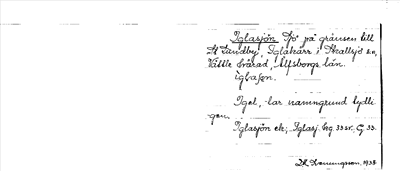 Iglasjön Sjö på gränsen till
St Lundby, Iglakärr i Skallsjö sn,
Vättle härad, Älfsborgs län.
iglasøn.
Igel, lar namngrund tydli
gen
Iglasjön ek; Iglasj. hg. 33 sv, G 33.
1938